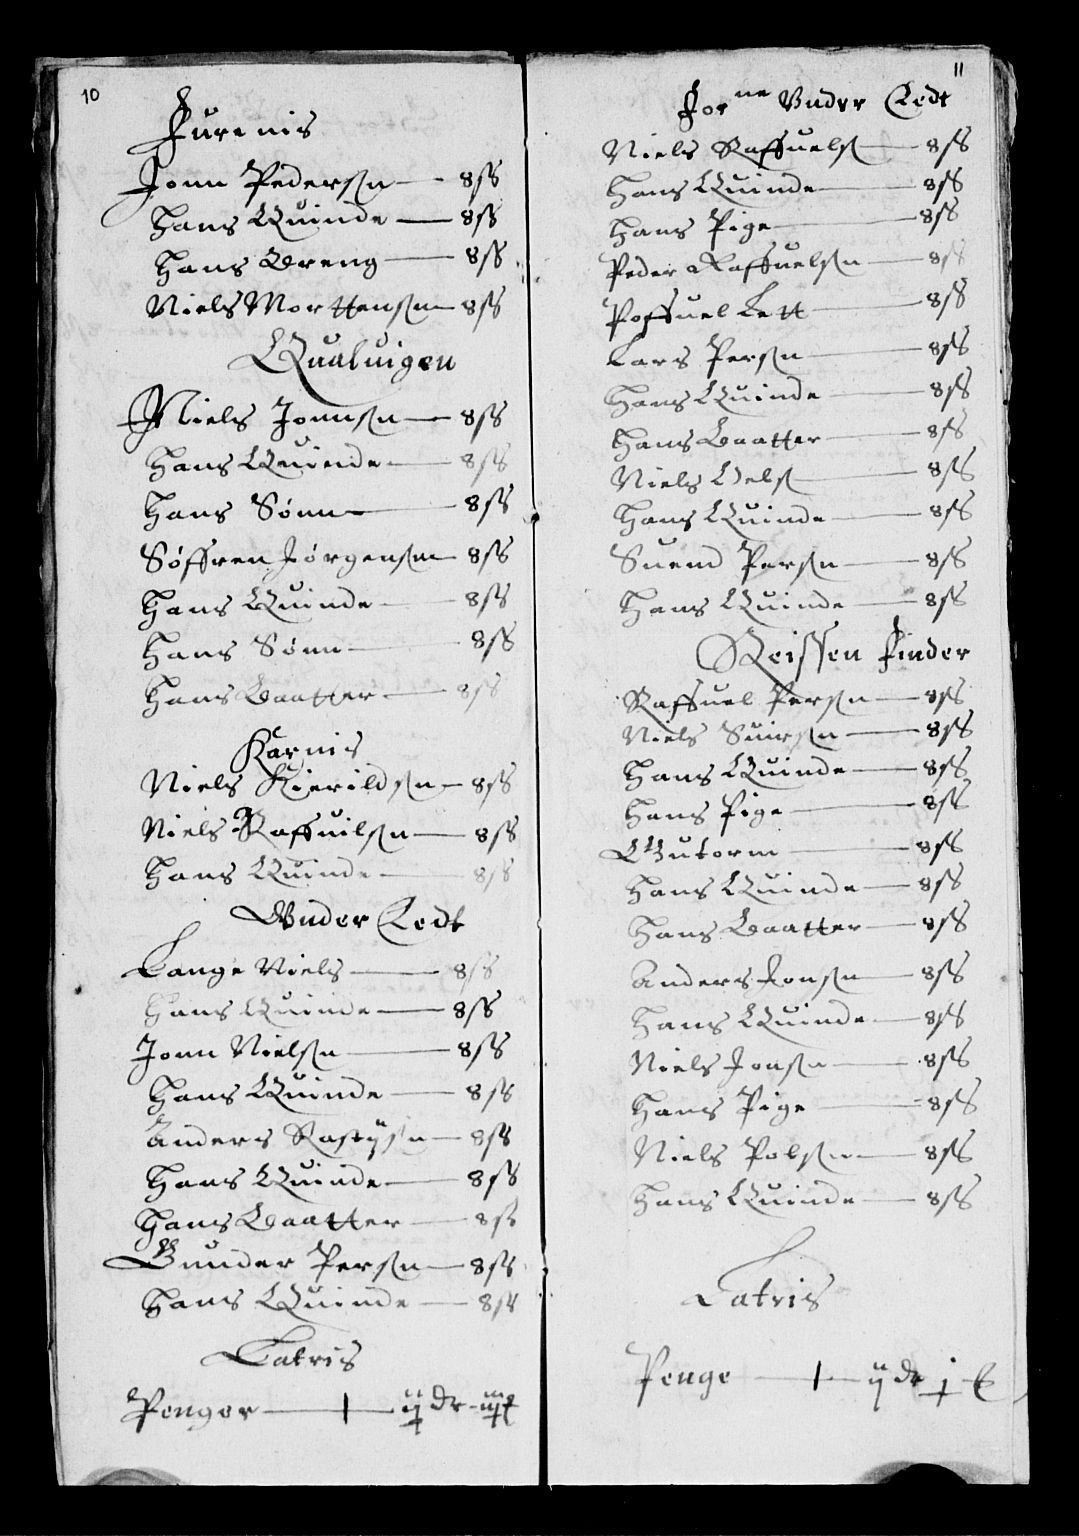 10
Furenis
Jonn Pedersen 8 ß
Hans Quinde 8 ß
Hans Dreng 8 ß
Niels Morttensen 8 ß
Qualuigen
Niels Jonnsen 8 ß
Hans Quinde 8 ß
Hans Sønn 8 ß
Søffren Jørgensen 8 ß
Hans Quinde 8 ß
Hans Sønn 8 ß
Hans Daatter 8 ß
Karnis
Niels Kierildsen 8 ß
Niels Raffuilsen 8 ß
Hans Quinde 8 ß
Vnder Ledt
Lange Niels 8 ß
Hans Quinde 8 ß
Jonn Nielsen 8 ß
Hans Quinde 8 ß
Anders 8 ß
Hans Quinde 8 ß
Hans Daatter 8 ß
Gunder Persen 8 ß
Hans Quinde 8 ß
Latris
Penger 1 ij dr iiij ß
11
Forne Vnder Ledt
Niels Raffuels 8 ß
Hans Quinde 8 ß
Hans Pige 8 ß
Peder Raffuelsen 8 ß
Poffuel Lett 8 ß
Lars Persen 8 ß
Hans Quinde 8 ß
Hans Daatter 8 ß
Niels Oels 8 ß
Hans Quinde 8 ß
Suend Persen 8 ß
Hans Quinde 8 ß
Reissen Finder
Raffuel Persen 8 ß
Niels 8 ß
Hans Quinde 8 ß
Hans Pige 8 ß
Gutorm 8 ß
Hans Quinde 8 ß
Hans Daatter 8 ß
Anders Jonsen 8 ß
Hans Quinde 8 ß
Niels Jonsen 8 ß
Hans Pige 8 ß
Niels Polsen 8 ß
Hans Quinde 8 ß
Latris
Penge 1 ij dr j